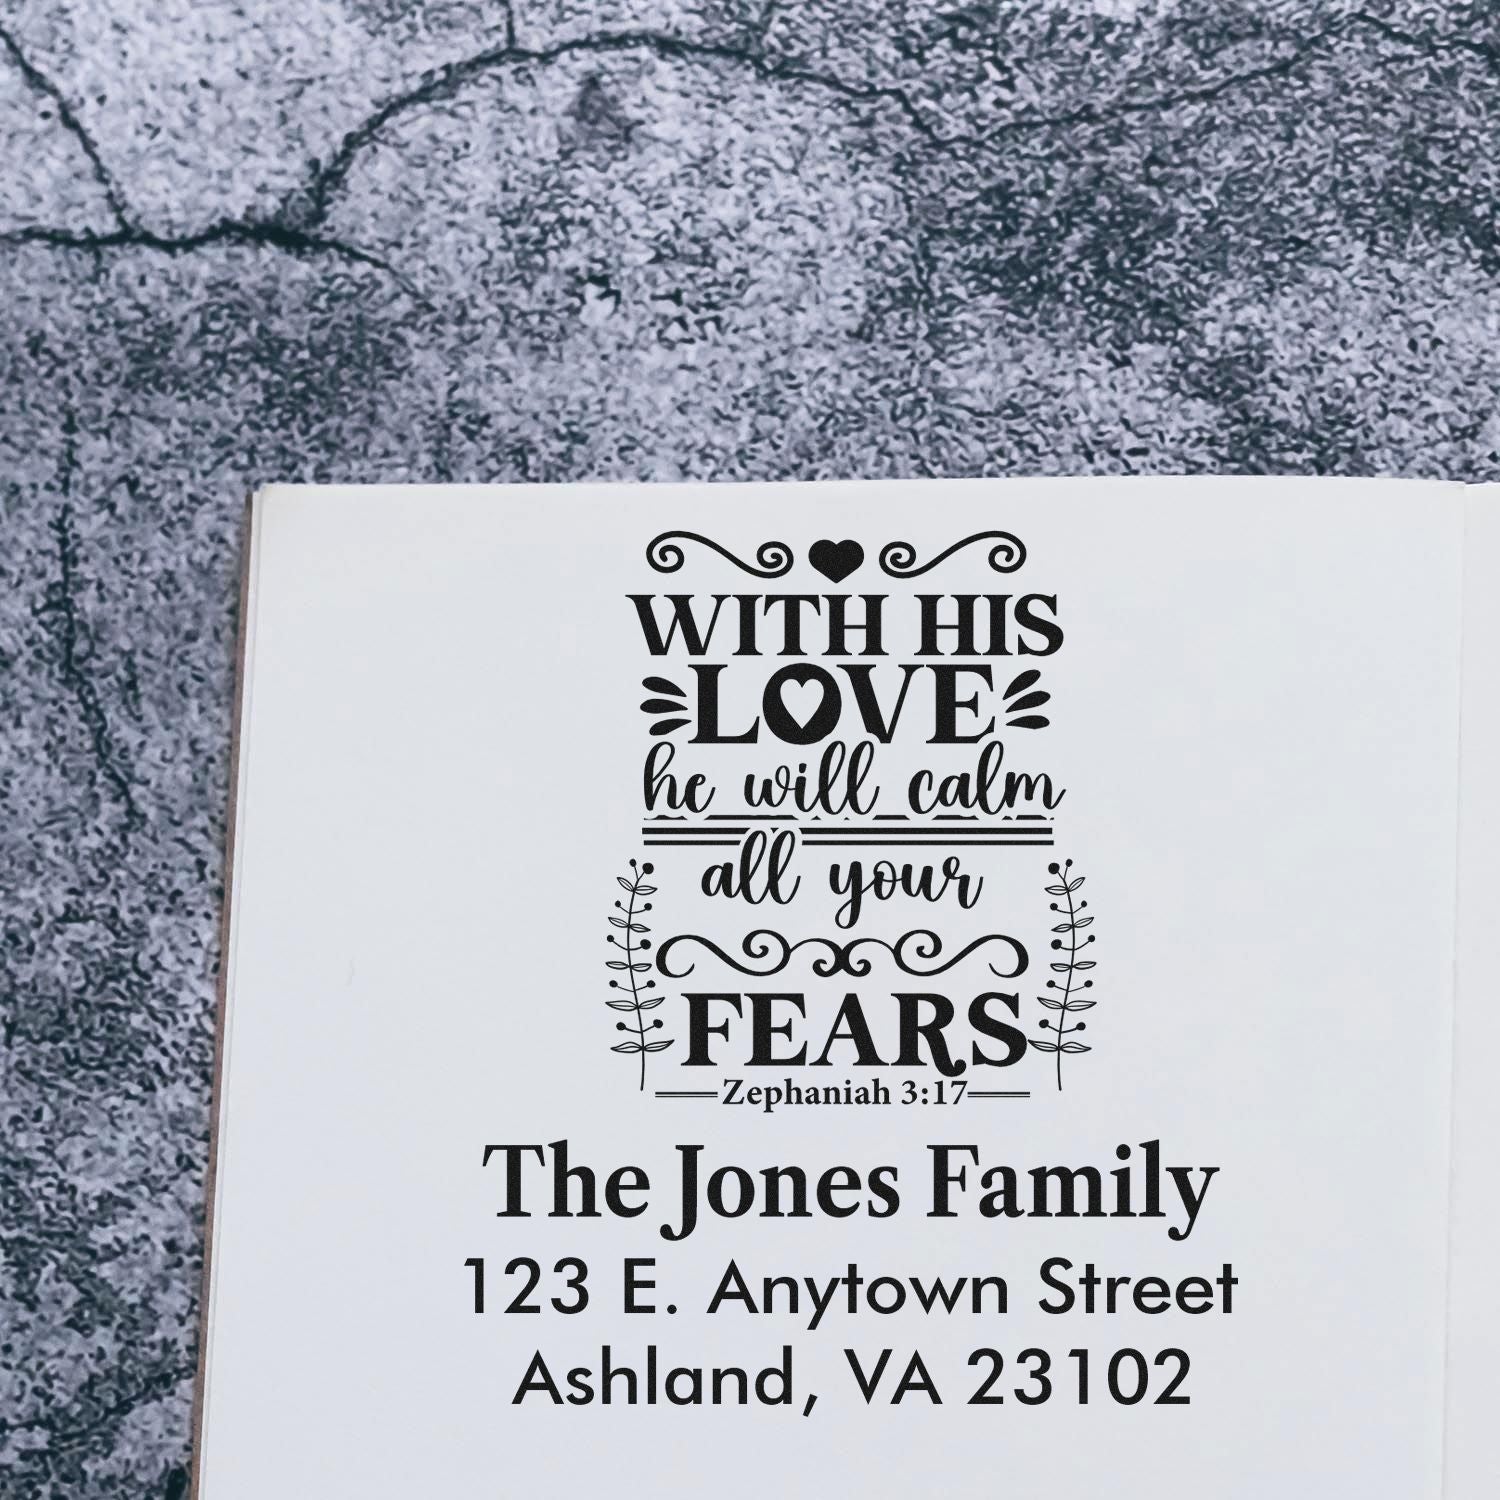 WITH HIS
LOVE
he will calm
all your
FEARS
Zephaniah 3:17
The Jones Family
123 E. Anytown Street
Ashland, VA 23102